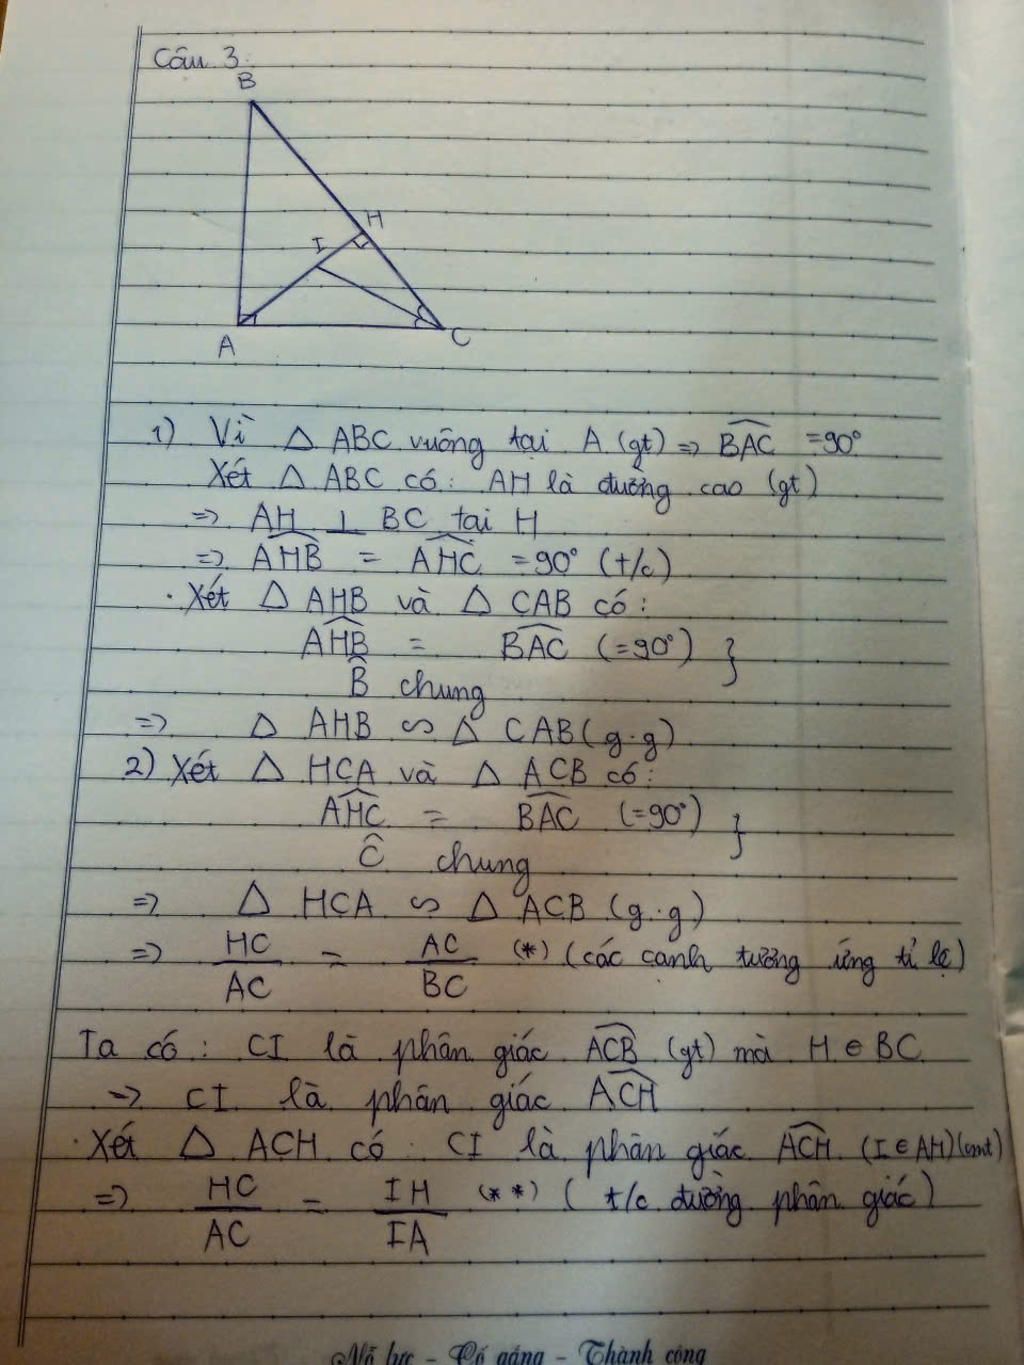 Câu 3:
B
H
I
A
C
1) Vì △ ABC vuông tại A (gt) => \widehat{BAC} = 90°
Xét △ ABC có: AH là đường cao (gt)
=> AH ⊥ BC tại H
=> \widehat{AHB} = \widehat{AHC} = 90° (t/c)
· Xét △ AHB và △ CAB có:
\widehat{AHB} = \widehat{BAC} (= 90°) }
\widehat{B} chung
=> △ AHB ∽ △ CAB (g.g)
2) Xét △ HCA và △ ACB có:
\widehat{AHC} = \widehat{BAC} (= 90°) }
\widehat{C} chung
=> △ HCA ∽ △ ACB (g.g)
=> \frac{HC}{AC} = \frac{AC}{BC} (*) (các cạnh tương ứng tỉ lệ)
Ta có: CI là phân giác \widehat{ACB} (gt) mà H ∈ BC
=> CI là phân giác \widehat{ACH}
· Xét △ ACH có: CI là phân giác \widehat{ACH} (I ∈ AH) (cmt)
=> \frac{HC}{AC} = \frac{IH}{IA} (**) (t/c đường phân giác)
Nỗ lực - Cố gắng - Thành công